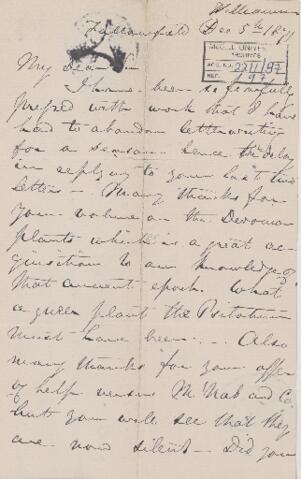 Williamson
Fallowfield Dec 5th 1871
McGILL UNIVERSITY
ARCHIVES
ACC. NO. 2211/97
REF.
My Dear
I have been so fearfully
pressed with work that I have
had to abandon letter writing
for a season. hence the delay
in replying to your last two
letters - Many thanks for
your volume on the Devonian
plants which is a great ac-
quisition to our knowledge of
that ancient epoch. What
a queer plant the Psilophyton
must have been. - - Also
many thanks for your offer
of help versus McNab and Co.
but you will see that they
are now silent - Did you